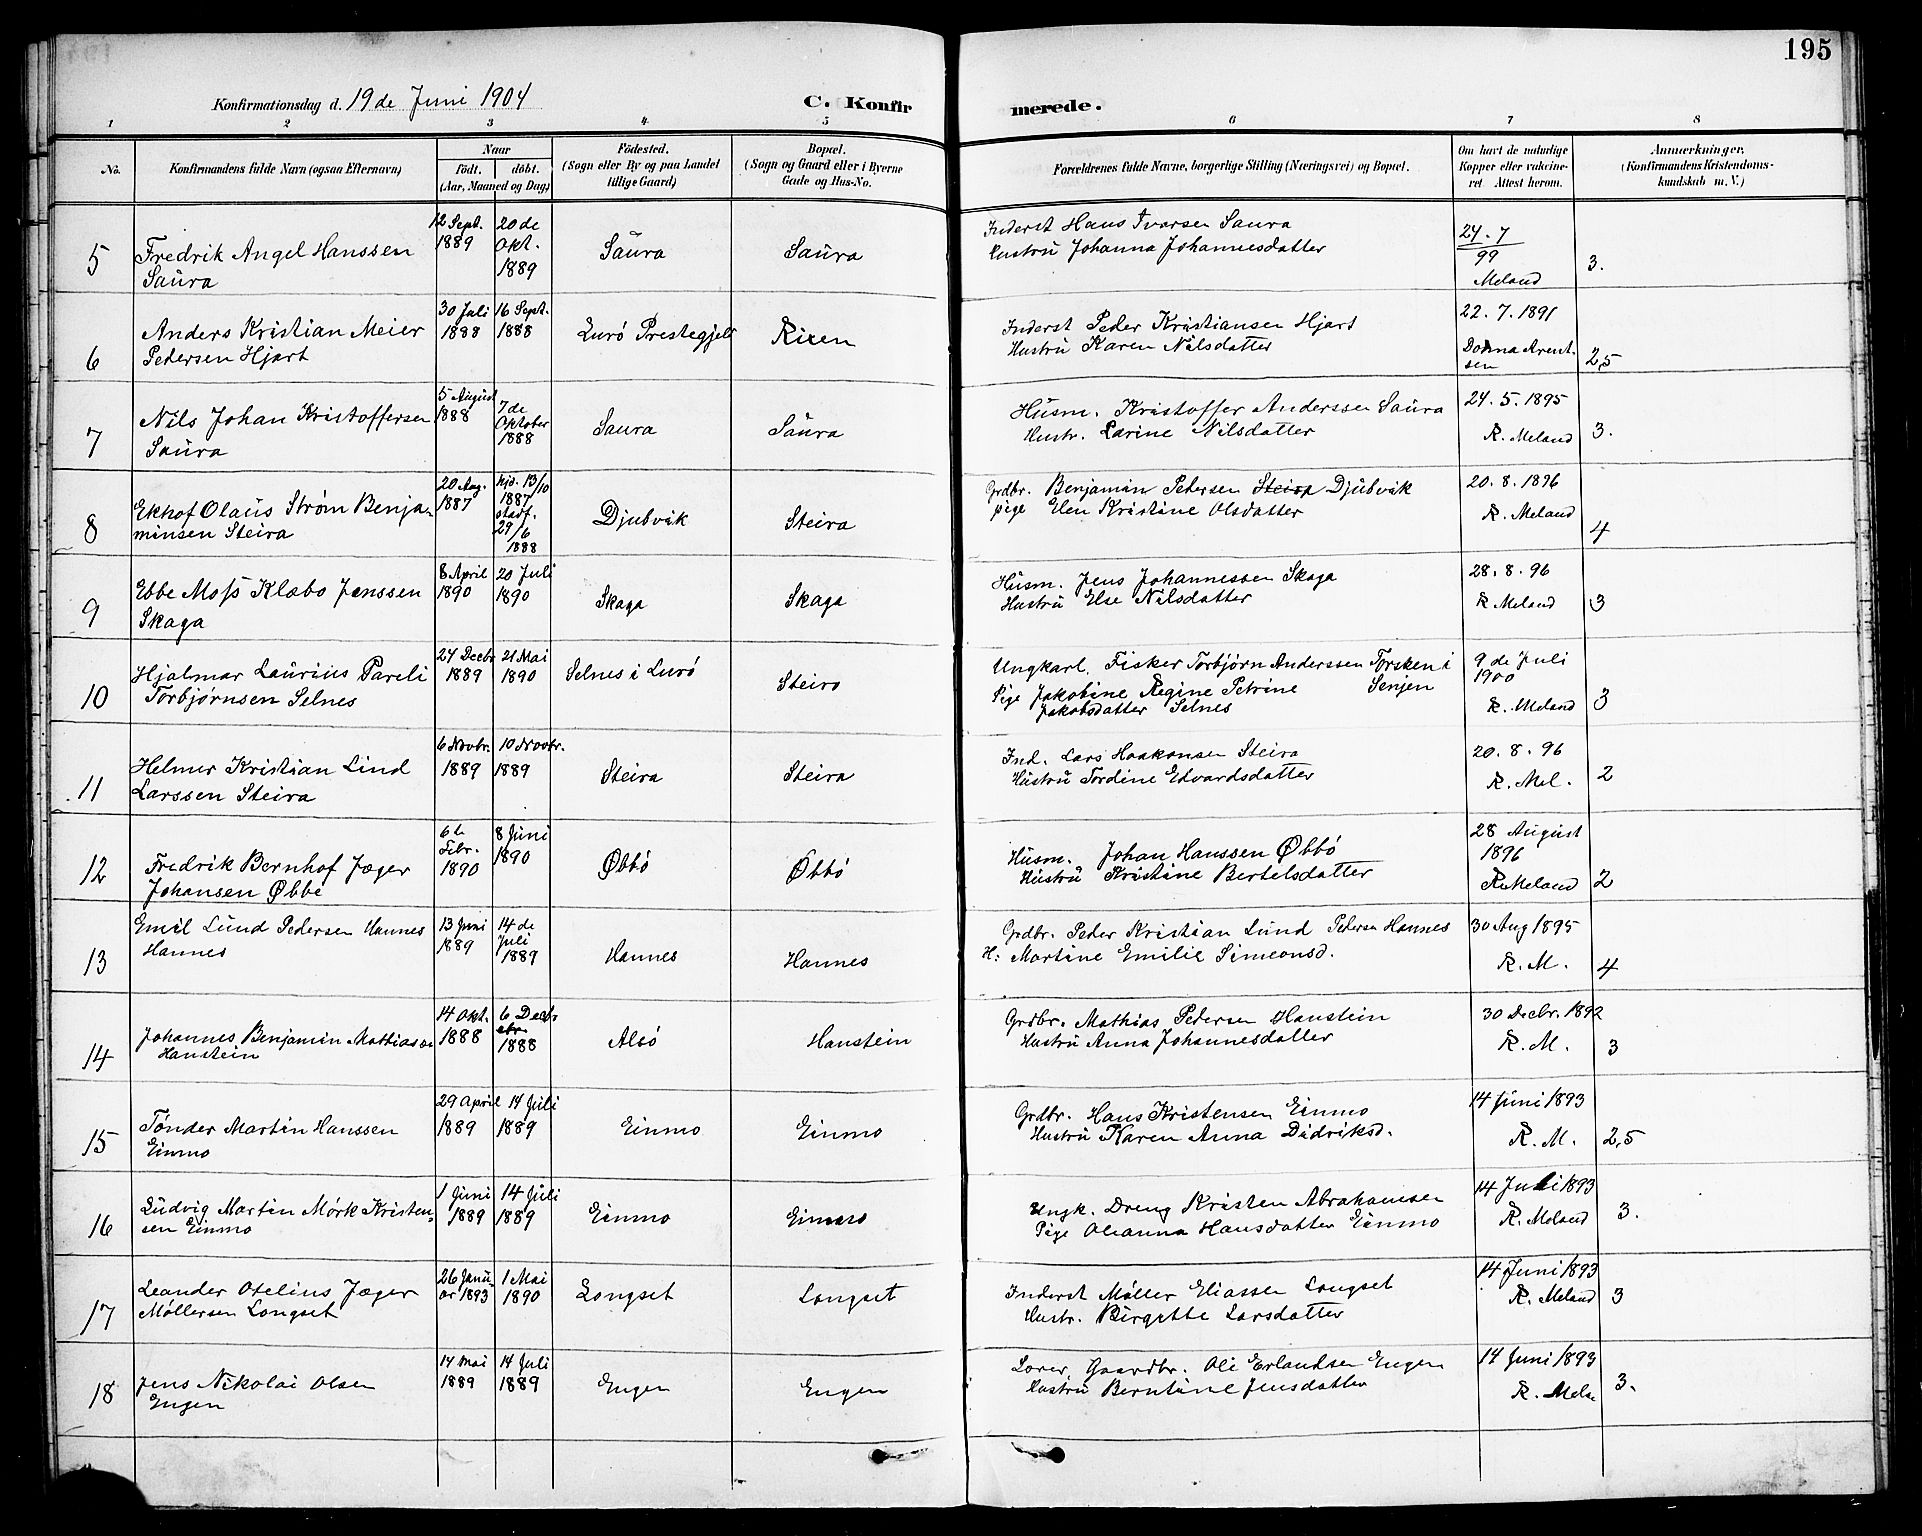 195
Konfirmationsdag d. 19 de Juni 1904
C. Konfirmerede.
1 2 3 4 5 6 7 8
No.
Konfirmandens fulde Navn (ogsaa Efternavn)
Naar
født. døbt.
(Aar, Maaned og Dag)
Fødested.
(Sogn eller By og paa Landet
tillige Gaard)
Bopæl.
(Sogn og Gaard eller i Byerne
Gade og Hus-No.
Forældrenes fulde Navne, borgerlige Stilling (Næringsvei) og Bopæl.
Om havt de naturlige
Kopper eller vaccine-
ret Attest herom.
Anmærkninger.
(Konfirmandens Kristendoms-
kundskab m. V.)
5 Fredrik Angel Hanssen
Saura
12 Sept. 1889
20 de Okt. 1889
Saura
Saura
Inderst Hans Ivarsen Saura
Hustru Johanna Johannesdatter
24.7 99 Meland
3.
6 Anders Kristian Meier
Pedersen Hjart
30 Juli 1888
16 Sept. 1888
Lurö Prestegjeld
Inderst Peder Kristiansen Hjart
Hustru Karen Nilsdatter
22.7.1891
Arentsen
2,5
7 Nils Johan Kristoffersen
Saura
5 August 1888
7 de Oktober 1888
Saura
Saura
Husm. Kristoffer Anderssen Saura
Hustr. Larine Nilsdatter
24.5.1895
R. Meland
3.
8 Ekhof Olaus Strøm Benja-
minsen Steira
20 Aug. 1887
hjd. 13/10 1887 stadf. 29/6 1888
Djubvik
Steira
Grdbr. Benjamin Petersen Steira Djubvik
pige Elen Kristine Olsdatter
20.8.1896
R. Meland
4
9 Ebbe Moss Klæbo Jenssen
Skaga
8 April 1890
20 Juli 1890
Skaga
Skaga
Husm. Jens Johannessen Skaga
Hustru Else Nilsdatter
28.8.96
R Meland
3
10 Hjalmar Laurius Pareli
Torbjørnsen Selnes
24 Decbr 1889
21 Mai 1890
Selnes i Lurö
Steiro
Ungkarl. Fisker Torbjørn Anderssen Torsken i
Senjen
Pige Jakobine Regine Petrine
Jakobsdatter Selnes
9 de Juli 1900
R. Meland
3
11 Helmer Kristian Lind
Larssen Steira
6 Novbr. 1889
10 Novbr. 1889
Steira
Steira
Ind. Lars Haakonsen Steira
Hustru Tordine Edvardsdatter
20.8.96
R. Mel.
2
12 Fredrik Bernhof Jæger
Johansen Øbbe
6 te Febr. 1890
8 Juni 1890
Øbbö
Öbbö
Husm. Johan Hanssen Øbbö
Hustru Kristine Bertelsdatter
28 August 1896
R. Meland
2
13 Emil Lund Pedersen Hannes
Hannes
13 Juni 1889
14 de Juli 1889
Hannes
Hannes
Grdbr. Peder Kristian Lund Pedersen Hannes
H: Martine Emilie Simeonsd.
30 Aug 1895
R. M.
4
14 Johannes Benjamin Mathiasen
Hanstein
14 Okt. 1888
6 Decbr 1888
Alsö
Hanstein
Grdbr. Mathias Pedersen Hanstein
Hustru Anna Johannesdatter
30 Decbr. 1892
R. M.
3
15 Tønder Martin Hanssen
Einmo
29 April 1889
14 Juli 1889
Einmo
Einmo
Grdbr. Hans Kristensen Einmo
Hustru Karen Anna Didriksd.
14 Juni 1893
R. M.
2,5
16 Ludvig Martin Mørk Kristen-
sen Einmo
1 Juni 1889
14 Juli 1889
Einmo
Einmo
Ungk. Dreng Kristen Abrahamsen
Pige Oleanna Hansdatter Einmo
14 Juli 1893
R. Meland
3.
17 Leander Otelius Jæger
Møllersen Longset
26 Januar 1893
1 Mai 1890
Longset
Longset
Inderst Møller Eliassen Longset
Hustr. Birgitte Larsdatter
14 Juni 1893
R. Meland
3
18 Jens Nikolai Olsen
Engen
14 Mai 1889
14 Juli 1889
Engen
Engen
Gaardbr. Ole Erlandsen Engen
Hustru Berntine Jensdatter
14 Juni 1893
R. Mela
3.